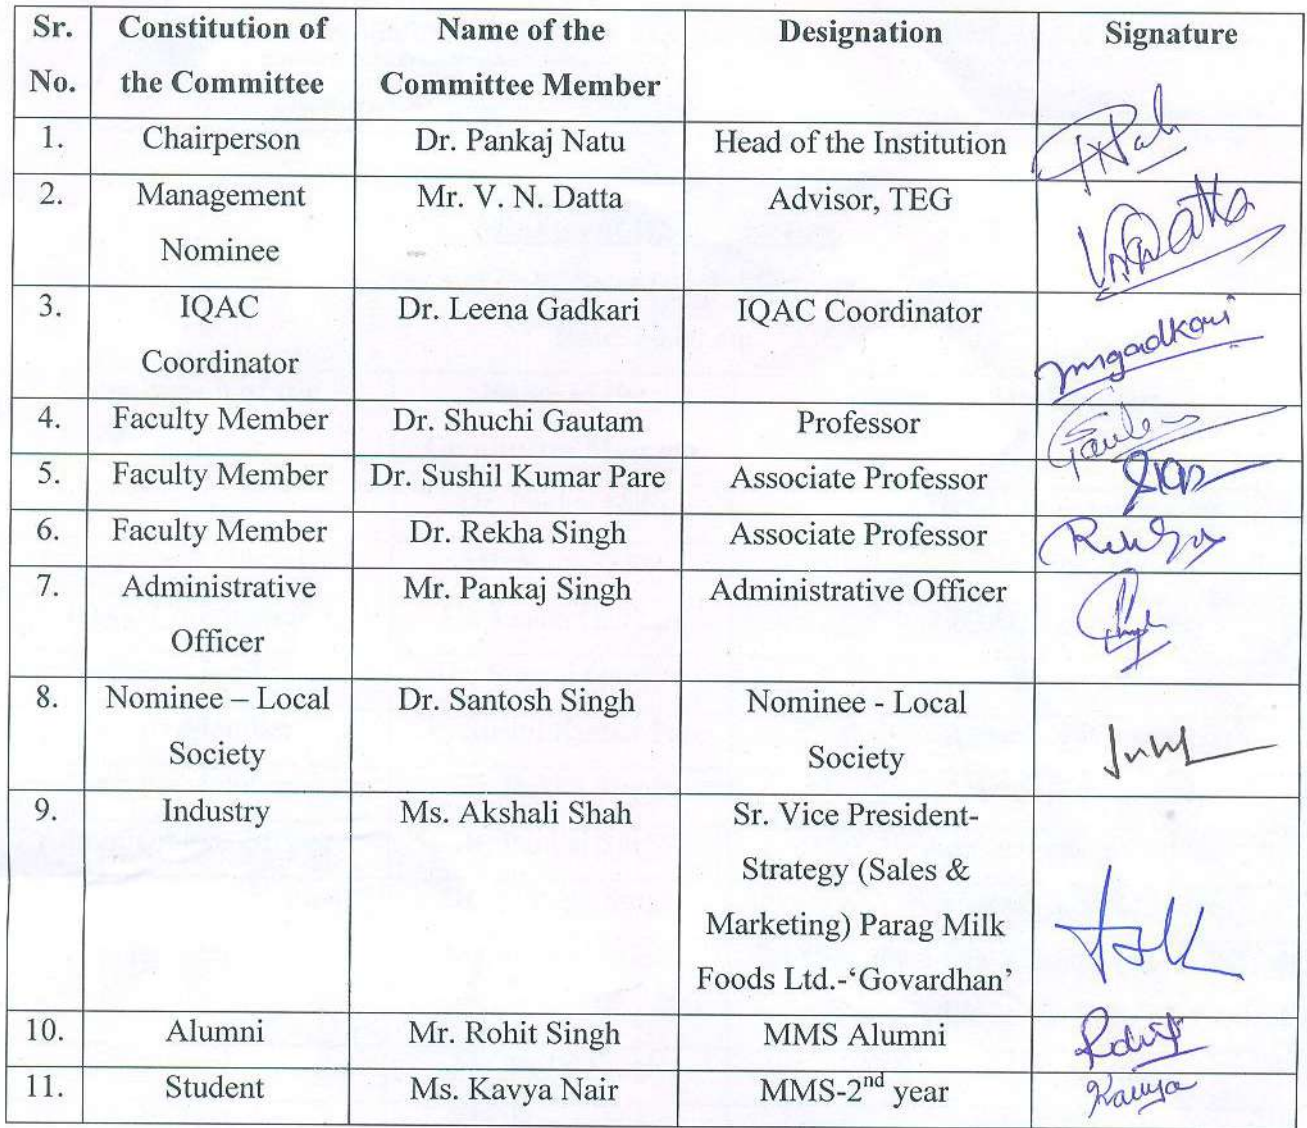 Sr. Constitution of Name of the Designation Signature
No. the Committee Committee Member
1. Chairperson Dr. Pankaj Natu Head of the Institution
2. Management Mr. V. N. Datta Advisor, TEG
Nominee V.N.Datta
3. IQAC Dr. Leena Gadkari IQAC Coordinator
Coordinator
4. Faculty Member Dr. Shuchi Gautam Professor
5. Faculty Member Dr. Sushil Kumar Pare Associate Professor
6. Faculty Member Dr. Rekha Singh Associate Professor
7. Administrative Mr. Pankaj Singh Administrative Officer
Officer
8. Nominee – Local Dr. Santosh Singh Nominee - Local
Society Society
9. Industry Ms. Akshali Shah Sr. Vice President-
Strategy (Sales &
Marketing) Parag Milk
Foods Ltd.-‘Govardhan’
10. Alumni Mr. Rohit Singh MMS Alumni Rohit
11. Student Ms. Kavya Nair MMS-2nd year Kavya